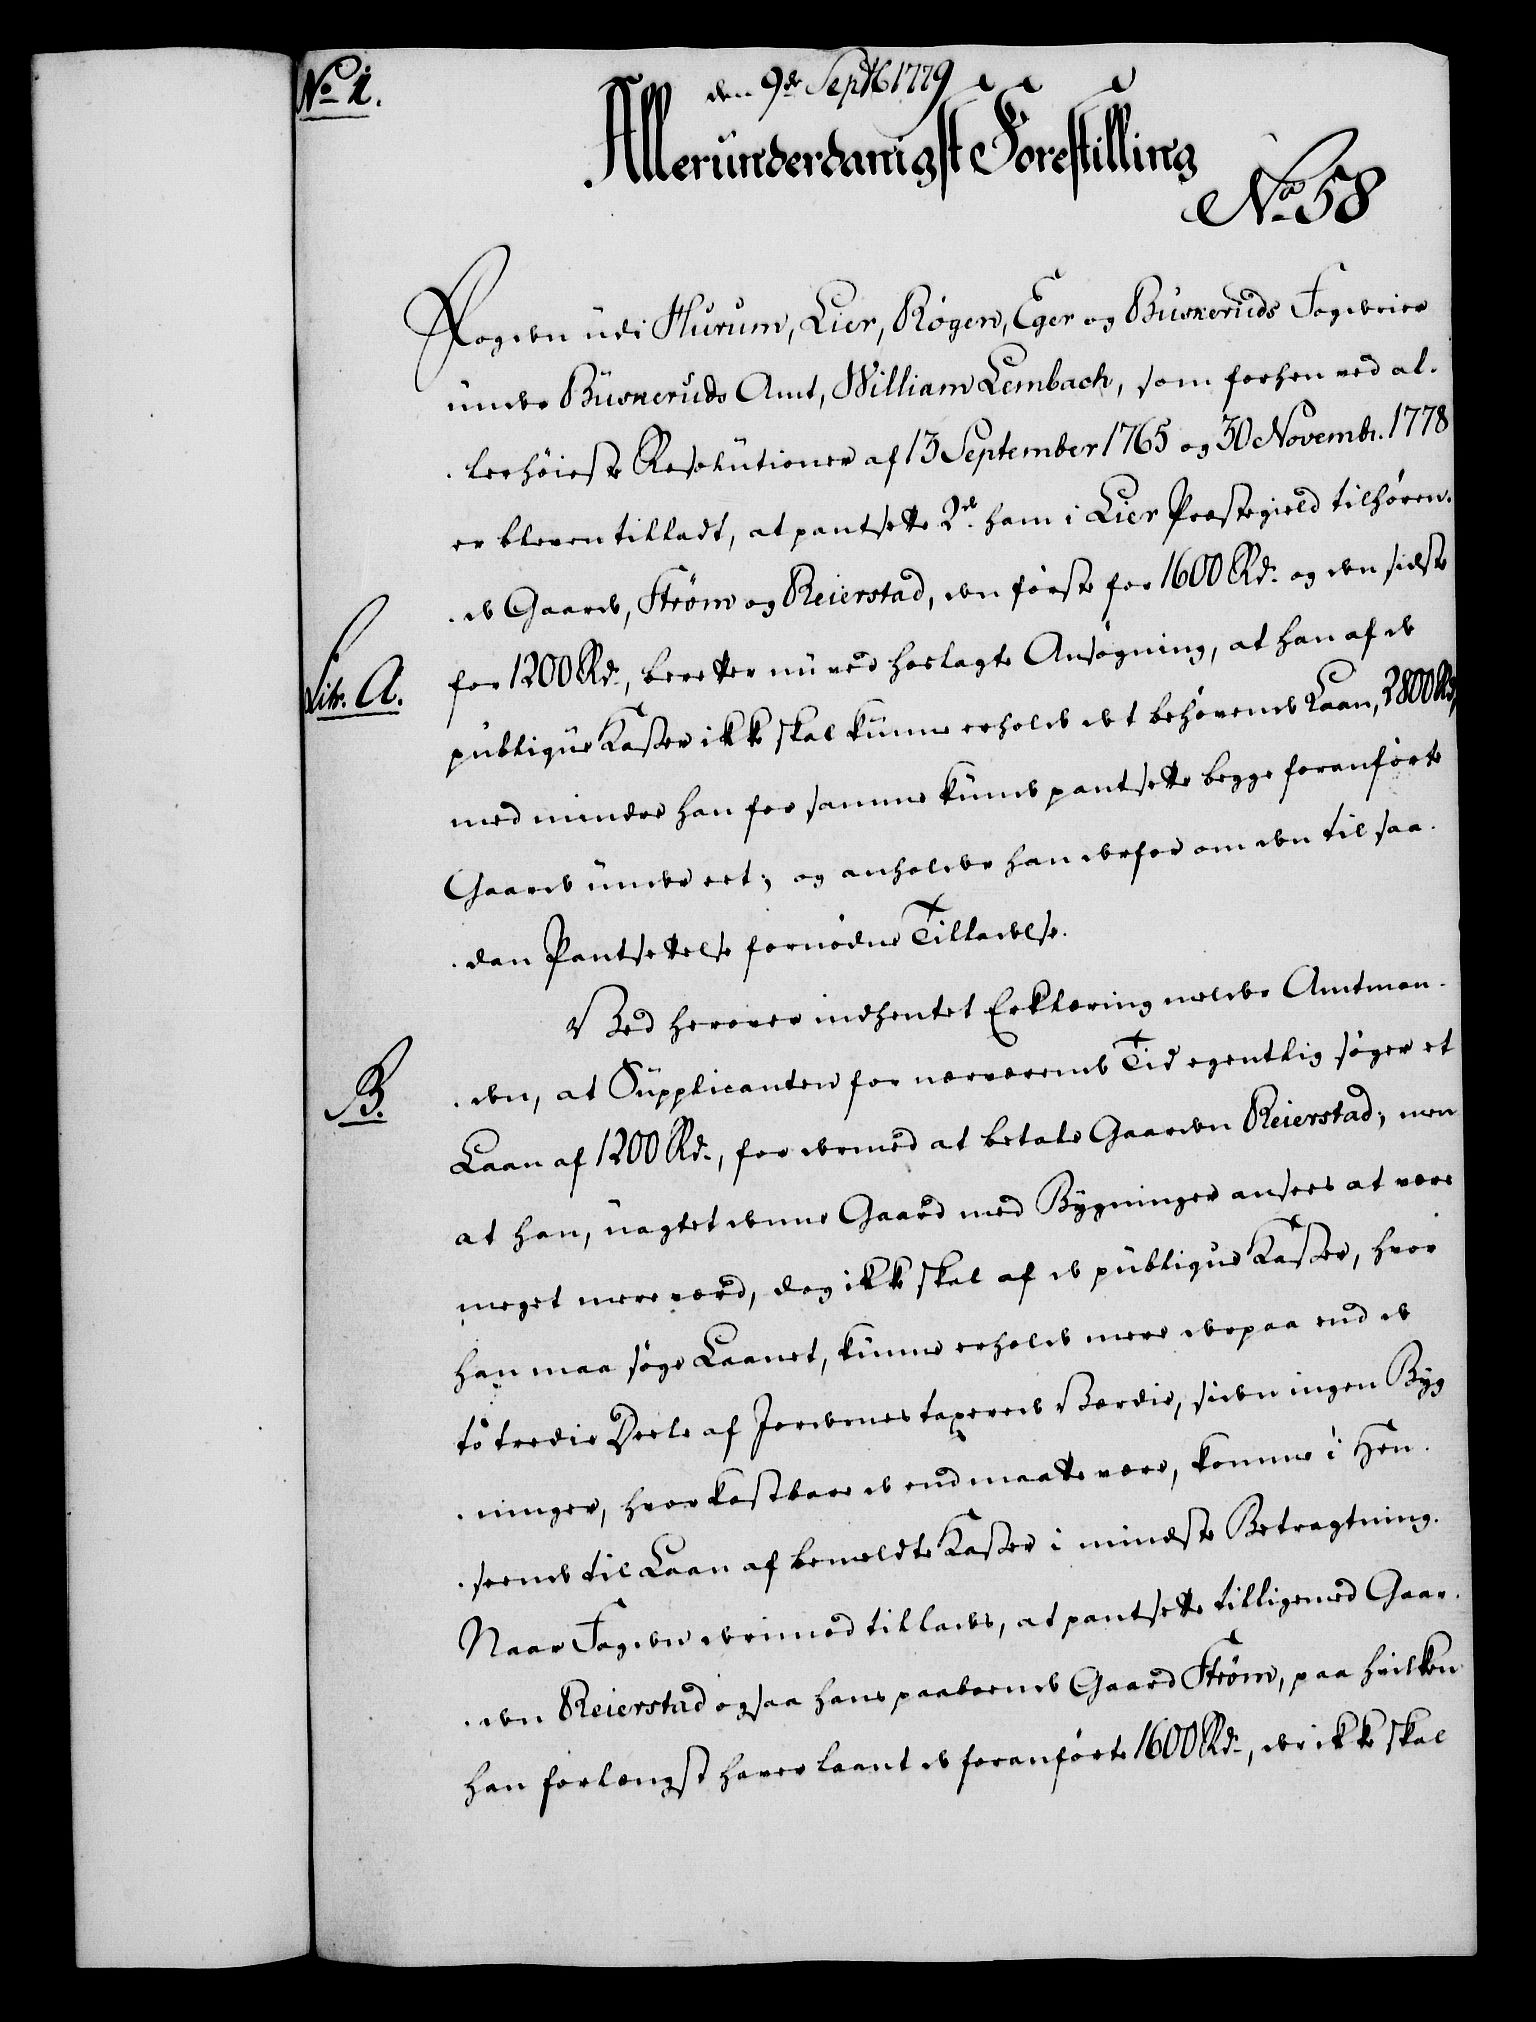 No 1.
den 9de Septb 1779
Allerunderdanigst Forestilling
No 58
Fogden udi Hurum, Lier, Røgen, Eger og Buskeruds Fogderier
under Buskeruds Amt, William Lembach, som forhen ved al-
lerhøieste Resolutioner af 13 September 1765 og 30 Novembr. 1778
er bleven tilladt, at pantsette 2de ham i Lier Præstegield tilhøren-
de Gaarde, Strøm og Reierstad, den første for 1600 Rd. og den sidste
Litr. A.
for 1200 Rd., beretter nu ved hoslagte Ansøgning, at han af de
publique Kasser ikke skal kunne erholde det behøvende Laan, 2800 Rd,
med mindre han for samme kunde pantsette begge foranførte
Gaarde under eet; og anholder han derfor om den til saa-
dan Pantsettelse fornødne Tilladelse.
Ved herover indhentet Erklæring melder Amtman-
B.
den, at Supplicanten for nærværende Tid egentlig søger et
Laan af 1200 Rd., for dermed at betale Gaarden Reierstad; men
at han, uagtet denne Gaard med Bygninger ansees at være
meget mere værd, dog ikke skal af de publique Kasser, hvor
han maa søge Laanet, kunne erholde mere derpaa end de
to tredie Deele af Jordenes taxerede Værdie, siden ingen Byg
ninger, hvor kostbare de end maatte være, komme i Hen-
seende til Laan af bemeldte Kasser i mindste Betragtning.
Naar Fogden derimod tillades, at pantsette tilligemed Gaar-
den Reierstad ogsaa hans paaboende Gaard Strøm, paa hvilken
han forlængst haver laant de foranførte 1600 Rd., der ikke skal